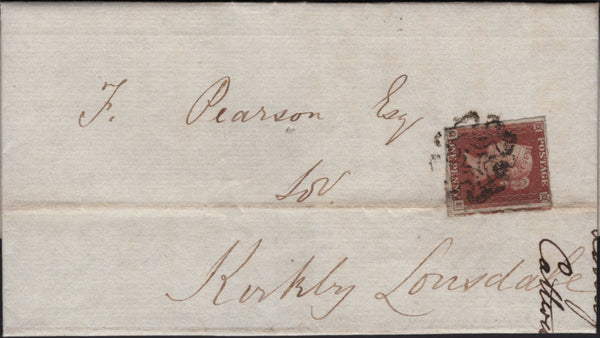 F. Pearson Esq
Sor.
Kirkby Lonsdale
POSTAGE
ONE PENNY